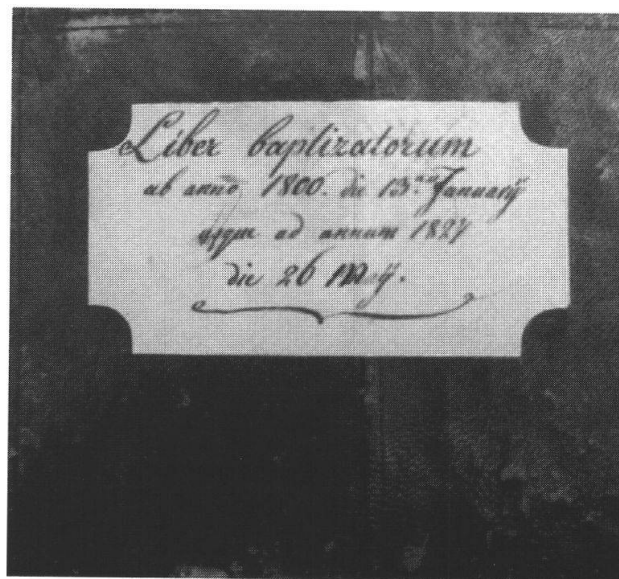 Liber baptizatorum
ab anno 1800. die 13. Januarij
usque ad annum 1827
die 26 Maij.